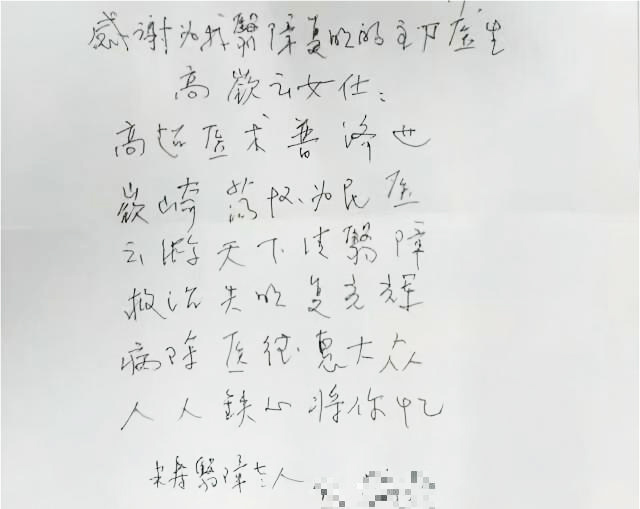 感谢为我翳障复明的主刀医生
高嵚云女仕：
高超医术普济世
嵚崎 为民医
云游天下清翳障
救治失明复光辉
病除医德惠大众
人人铁心将你忆
翳障老人